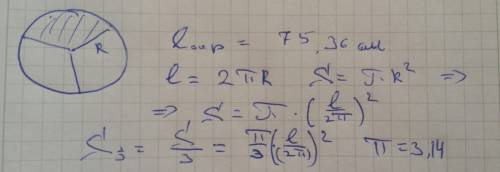 R
l окр = 75,36 см
l = 2πR S = π·R² =>
=> S = π · (l/2π)²
S⅓ = S/3 = π/3 (l/2π)² π = 3,14